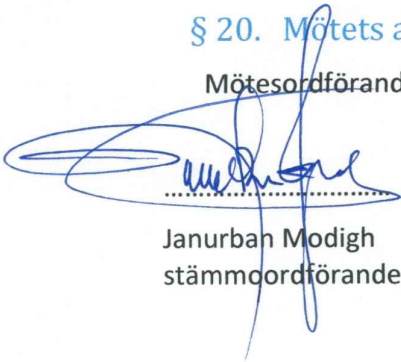 § 20. Mötets a
Mötesordförand
Janurban Modigh
stämmoordförande